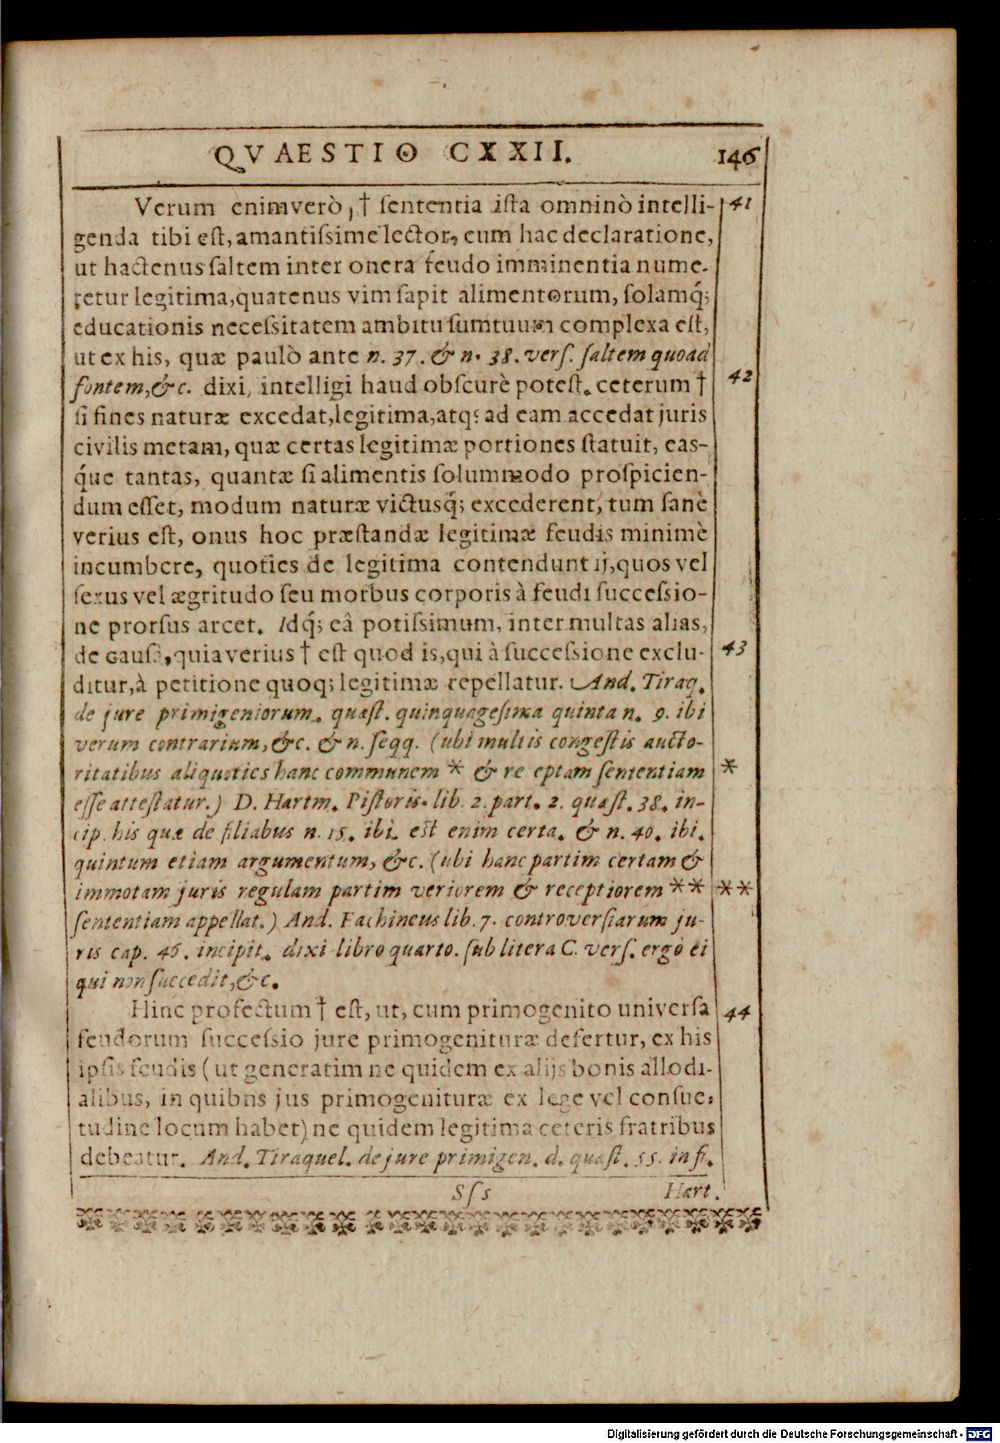 QVAESTIO CXXII. 146
Verum enimverò, † sententia ista omninò intelli- 41
genda tibi est, amantissime lector, cum hac declaratione,
ut hactenus saltem inter onera feudo imminentia nume-
retur legitima, quatenus vim sapit alimentorum, solamq́;
educationis necessitatem ambitu sumtuum complexa est,
ut ex his, quæ paulò ante n. 37. & n. 38. vers. saltem quoad
fontem, &c. dixi, intelligi haud obscurè potest. ceterum † 42
si fines naturæ excedat, legitima, atq; ad eam accedat juris
civilis metam, quæ certas legitimæ portiones statuit, eas-
q́ue tantas, quantæ si alimentis solummodo prospicien-
dum esset, modum naturæ victusq́; excederent, tum sanè
verius est, onus hoc præstandæ legitimæ feudis minimè
incumbere, quoties de legitima contendunt ij, quos vel
sexus vel ægritudo seu morbus corporis à feudi successio-
ne prorsus arcet. Idq́; eâ potissimum, inter multas alias,
de causâ, quia verius † est quod is, qui à successione exclu- 43
ditur, à petitione quoq; legitimæ repellatur. And. Tiraq.
de jure primigeniorum. quæst. quinquagesima quinta n. 9. ibi
verum contrarium, &c. & n. seqq. (ubi multis congestis aucto-
ritatibus aliquoties hanc communem * & re eptam sententiam *
esse attestatur.) D. Hartm. Pistoris. lib. 2. part. 2. quæst. 38. in-
cip. his quæ de filiabus n. 15. ibi. est enim certa. & n. 40. ibi.
quintum etiam argumentum, &c. (ubi hanc partim certam &
immotam juris regulam partim veriorem & receptiorem ** **
sententiam appellat.) And. Fachineus lib. 7. controversiarum ju-
ris cap. 46. incipit. dixi libro quarto. sub litera C. vers. ergò ei
qui non succedit, &c.
Hinc profectum † est, ut, cum primogenito universa 44
feudorum successio jure primogenituræ defertur, ex his
ipsis feudis (ut generatim ne quidem ex alijs bonis allodi-
alibus, in quibus jus primogenituræ ex lege vel consue-
tudine locum habet) ne quidem legitima ceteris fratribus
debeatur. And. Tiraquel. de jure primigen. d. quæst. 55. in fi.
Sss Hart.
Digitalisierung gefördert durch die Deutsche Forschungsgemeinschaft - DFG